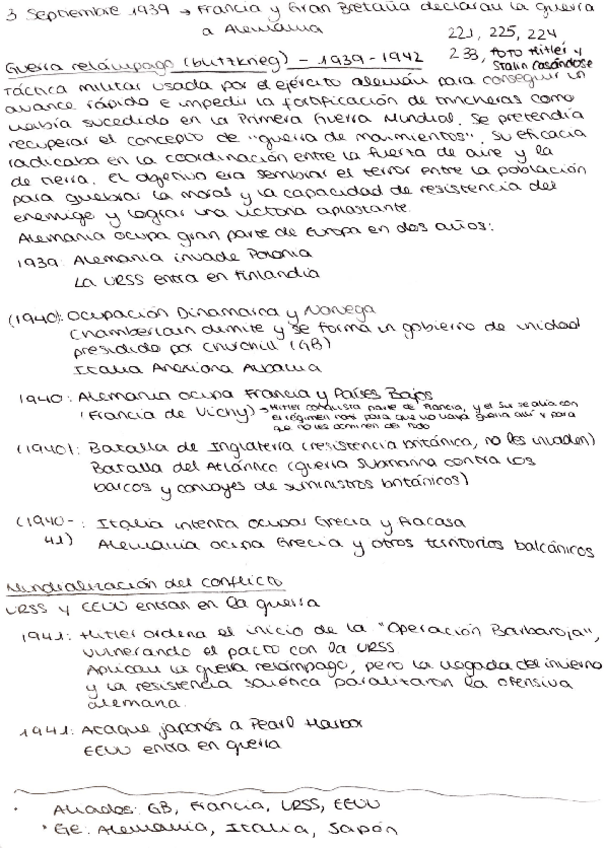 3 Septiembre 1939 → Francia y Gran Bretaña declaran la guerra
a Alemania
221, 225, 224
233, foto Hitler y
Stalin casándose
Guerra relámpago (blitzkrieg) - 1939-1942
Táctica militar usada por el ejército alemán para conseguir un
avance rápido e impedir la fortificación de trincheras como
había sucedido en la Primera Guerra Mundial. Se pretendía
recuperar el concepto de "guerra de movimientos". Su eficacia
radicaba en la coordinación entre la fuerza de aire y la
de tierra. El objetivo era sembrar el terror entre la población
para quebrar la moral y la capacidad de resistencia del
enemigo y lograr una victoria aplastante.
Alemania ocupa gran parte de Europa en dos años:
1939: Alemania invade Polonia
La URSS entra en Finlandia
(1940): Ocupación Dinamarca y Noruega
Chamberlain dimite y se forma un gobierno de unidad
presidido por Churchill (GB)
Italia Anexiona Albania
1940: Alemania ocupa Francia y Países Bajos
(Francia de Vichy) → Hitler conquista parte de Francia, y el sur se alía con
el régimen nazi para que no haya guerra allí y para
que no les dominen del todo
(1940): Batalla de Inglaterra (resistencia británica, no les invaden)
Batalla del Atlántico (guerra submarina contra los
barcos y convoyes de suministros británicos)
(1940- : Italia intenta ocupar Grecia y fracasa
41) Alemania ocupa Grecia y otros territorios balcánicos
Mundialización del conflicto
URSS y EEUU entran en la guerra
1941: Hitler ordena el inicio de la "Operación Barbarroja",
vulnerando el pacto con la URSS
Aplican la guerra relámpago, pero la llegada del invierno
y la resistencia soviética paralizaron la ofensiva
alemana.
1941: Ataque japonés a Pearl Harbor
EEUU entra en guerra
· Aliados: GB, Francia, URSS, EEUU
· Eje: Alemania, Italia, Japón